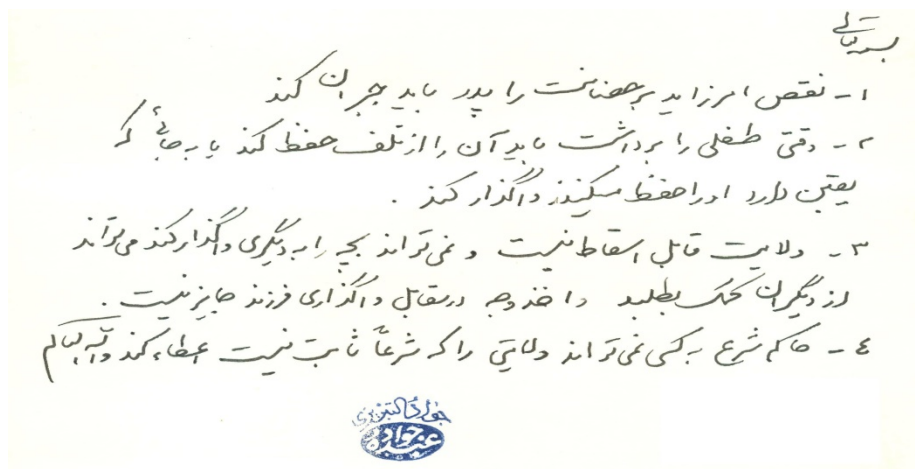 بسمه تعالی
۱- نقص امرزاید بر حضانت را پدر باید جبران کند
۲- وقتی طفلی را برداشت باید آن را از تلف حفظ کند یا به جائی که
یقین دارد او را حفظ میکنند واگذار کند .
۳- ولایت قابل اسقاط نیست و نمی تواند بچه را به دیگری واگذار کند می تواند
از دیگران کمک بطلبد و اخذ وجه در مقابل واگذاری فرزند جایز نیست .
٤- حاکم شرع به کسی نمی تواند ولایتی را که شرعاً ثابت نیست اعطاء کند والله العالم
جواد التبریزی
عبده جواد